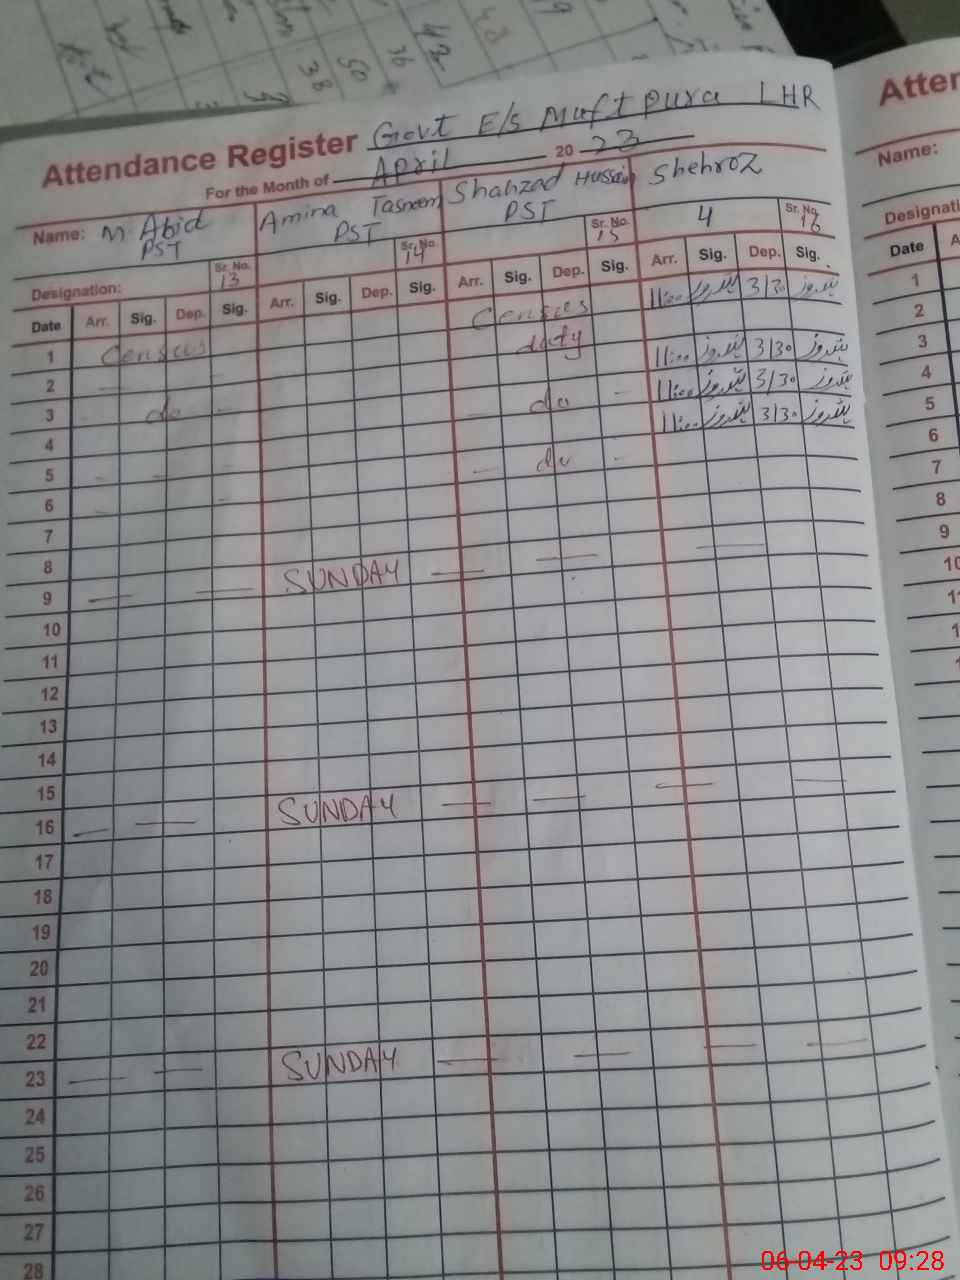 Attendance Register Govt E/s Muft pura LHR
For the Month of April 2023
Name: M Abid Amina Tasneem Shahzad Hussain Shehroz
PST PST PST 4
Designation: Sr. No. 13 Sr. No. 14 Sr. No. 15 Sr. No. 16
Date Arr. Sig. Dep. Sig. Arr. Sig. Dep. Sig. Arr. Sig. Dep. Sig. Arr. Sig. Dep. Sig.
1 Census Census 11:00 شہروز 3/30 شہروز
2 duty
3 do 11:00 شہروز 3/30 شہروز
4 do 11:00 شہروز 3/30 شہروز
5 11:00 شہروز 3/30 شہروز
6 do
7
8
9 SUNDAY
10
11
12
13
14
15
16 SUNDAY
17
18
19
20
21
22
23 SUNDAY
24
25
26
27
28
Atten
Name:
Designati
Date A
1
2
3
4
5
6
7
8
9
10
42
76
50
38
06-04-23 09:28